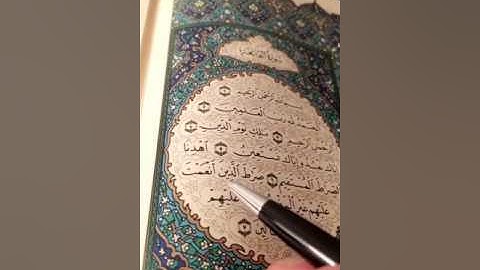 سورة الفاتحة
بسم الله الرحمن الرحيم ۝
الحمد لله رب العلمين ۝
الرحمن الرحيم ۝ ملك يوم الدين ۝
إياك نعبد وإياك نستعين ۝ اهدنا
الصرط المستقيم ۝ صرط الذين أنعمت
عليهم غير المغ عليهم
لين ۝